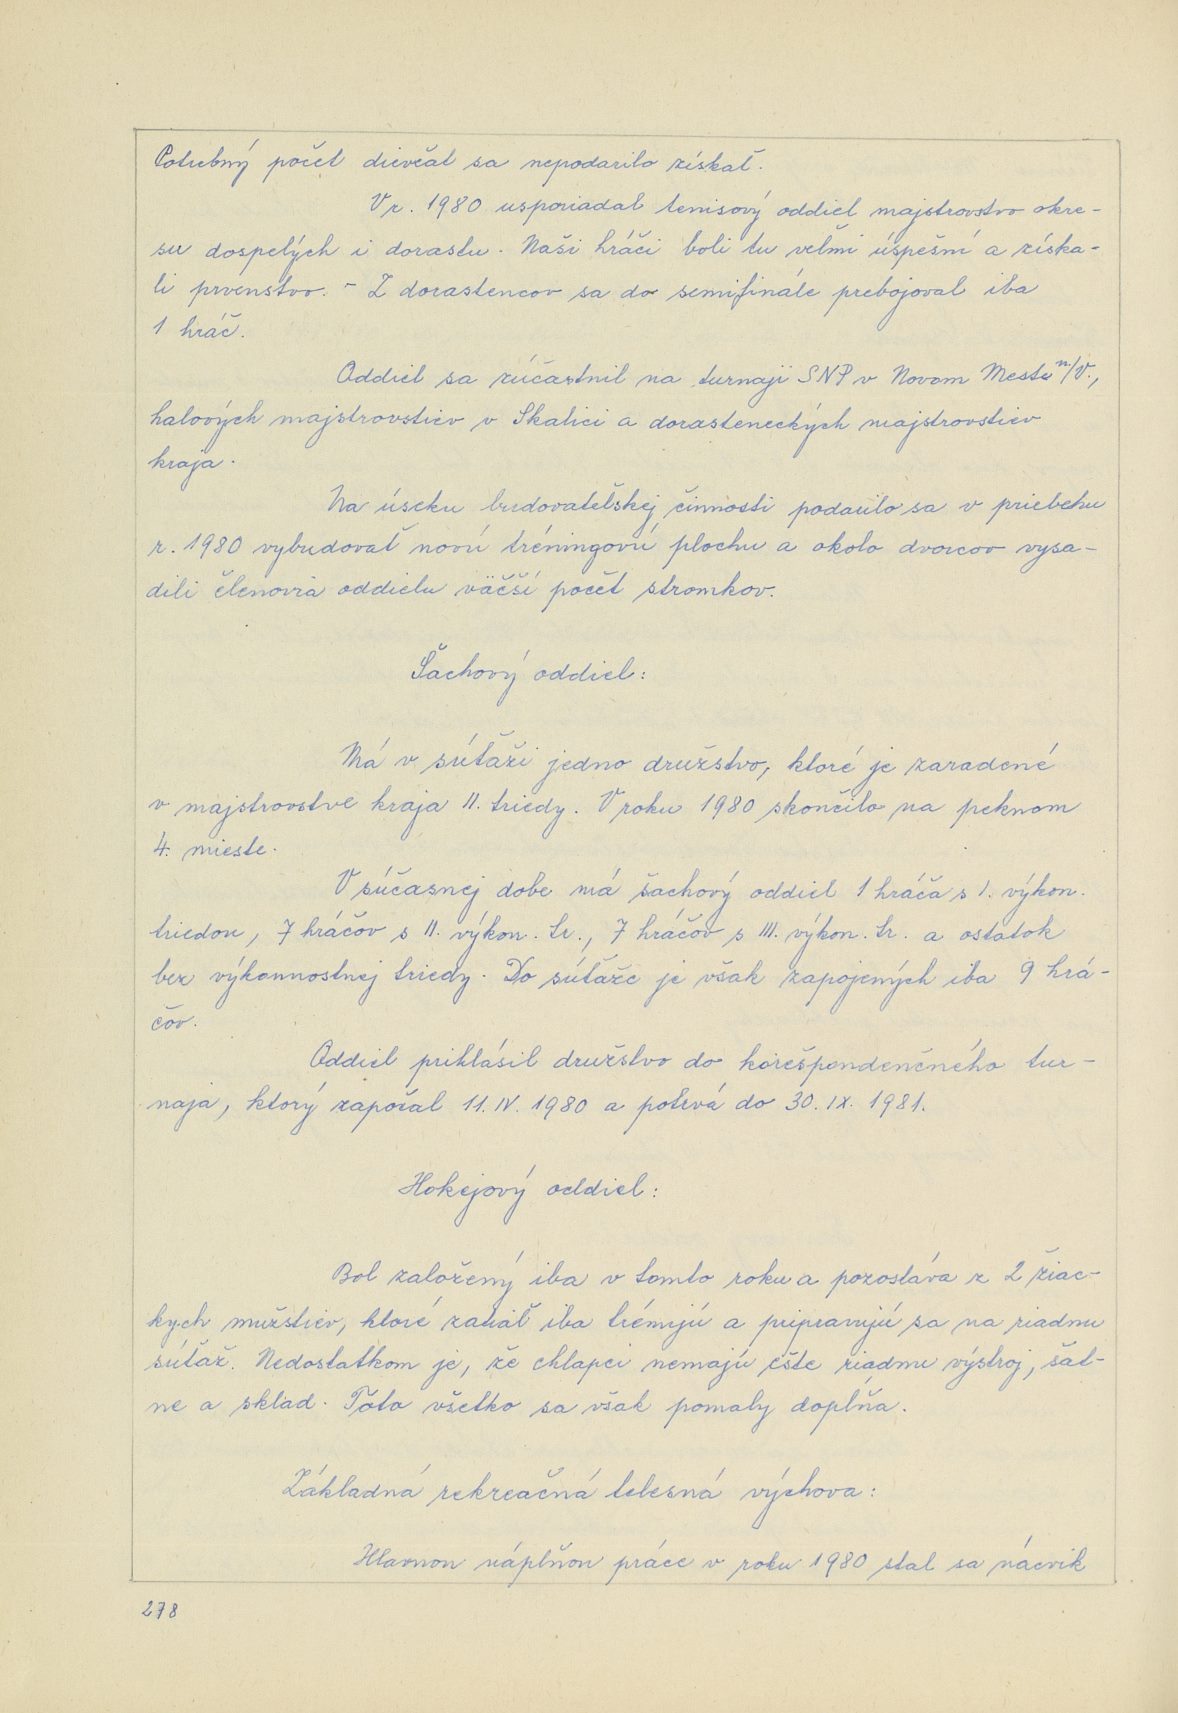 Potrebný počet dievčat sa nepodarilo získať.
V r. 1980 usporiadal tenisový oddiel majstrovstvo okre-
su dospelých i dorastu. Naši hráči boli tu veľmi úspešní a získa-
li prvenstvo. - Z dorastencov sa do semifinále prebojoval iba
1 hráč.
Oddiel sa zúčastnil na turnaji SNP v Novom Meste n/V.,
halových majstrovstiev v Skalici a dorasteneckých majstrovstiev
kraja.
Na úseku budovateľskej činnosti podarilo sa v priebehu
r. 1980 vybudovať novú tréningovú plochu a okolo dvorcov vysa-
dili členovia oddielu väčší počet stromkov.
Šachový oddiel:
Má v súťaži jedno družstvo, ktoré je zaradené
v majstrovstve kraja II. triedy. V roku 1980 skončilo na peknom
4. mieste.
V súčasnej dobe má šachový oddiel 1 hráča s I. výkon.
triedou, 7 hráčov s II. výkon. tr., 7 hráčov s III. výkon. tr. a ostatok
bez výkonnostnej triedy. Do súťaže je však zapojených iba 9 hrá-
čov.
Oddiel prihlásil družstvo do korešpondenčného tur-
naja, ktorý započal 11. IV. 1980 a potrvá do 30. IX. 1981.
Hokejový oddiel:
Bol založený iba v tomto roku a pozostáva z 2 žiac-
kych mužstiev, ktoré zatiaľ iba trénujú a pripravujú sa na riadnu
súťaž. Nedostatkom je, že chlapci nemajú ešte riadnu výstroj, šat-
ne a sklad. Toto všetko sa však pomaly doplňa.
Základná rekreačná telesná výchova:
Hlavnou náplňou práce v roku 1980 stal sa nácvik
278